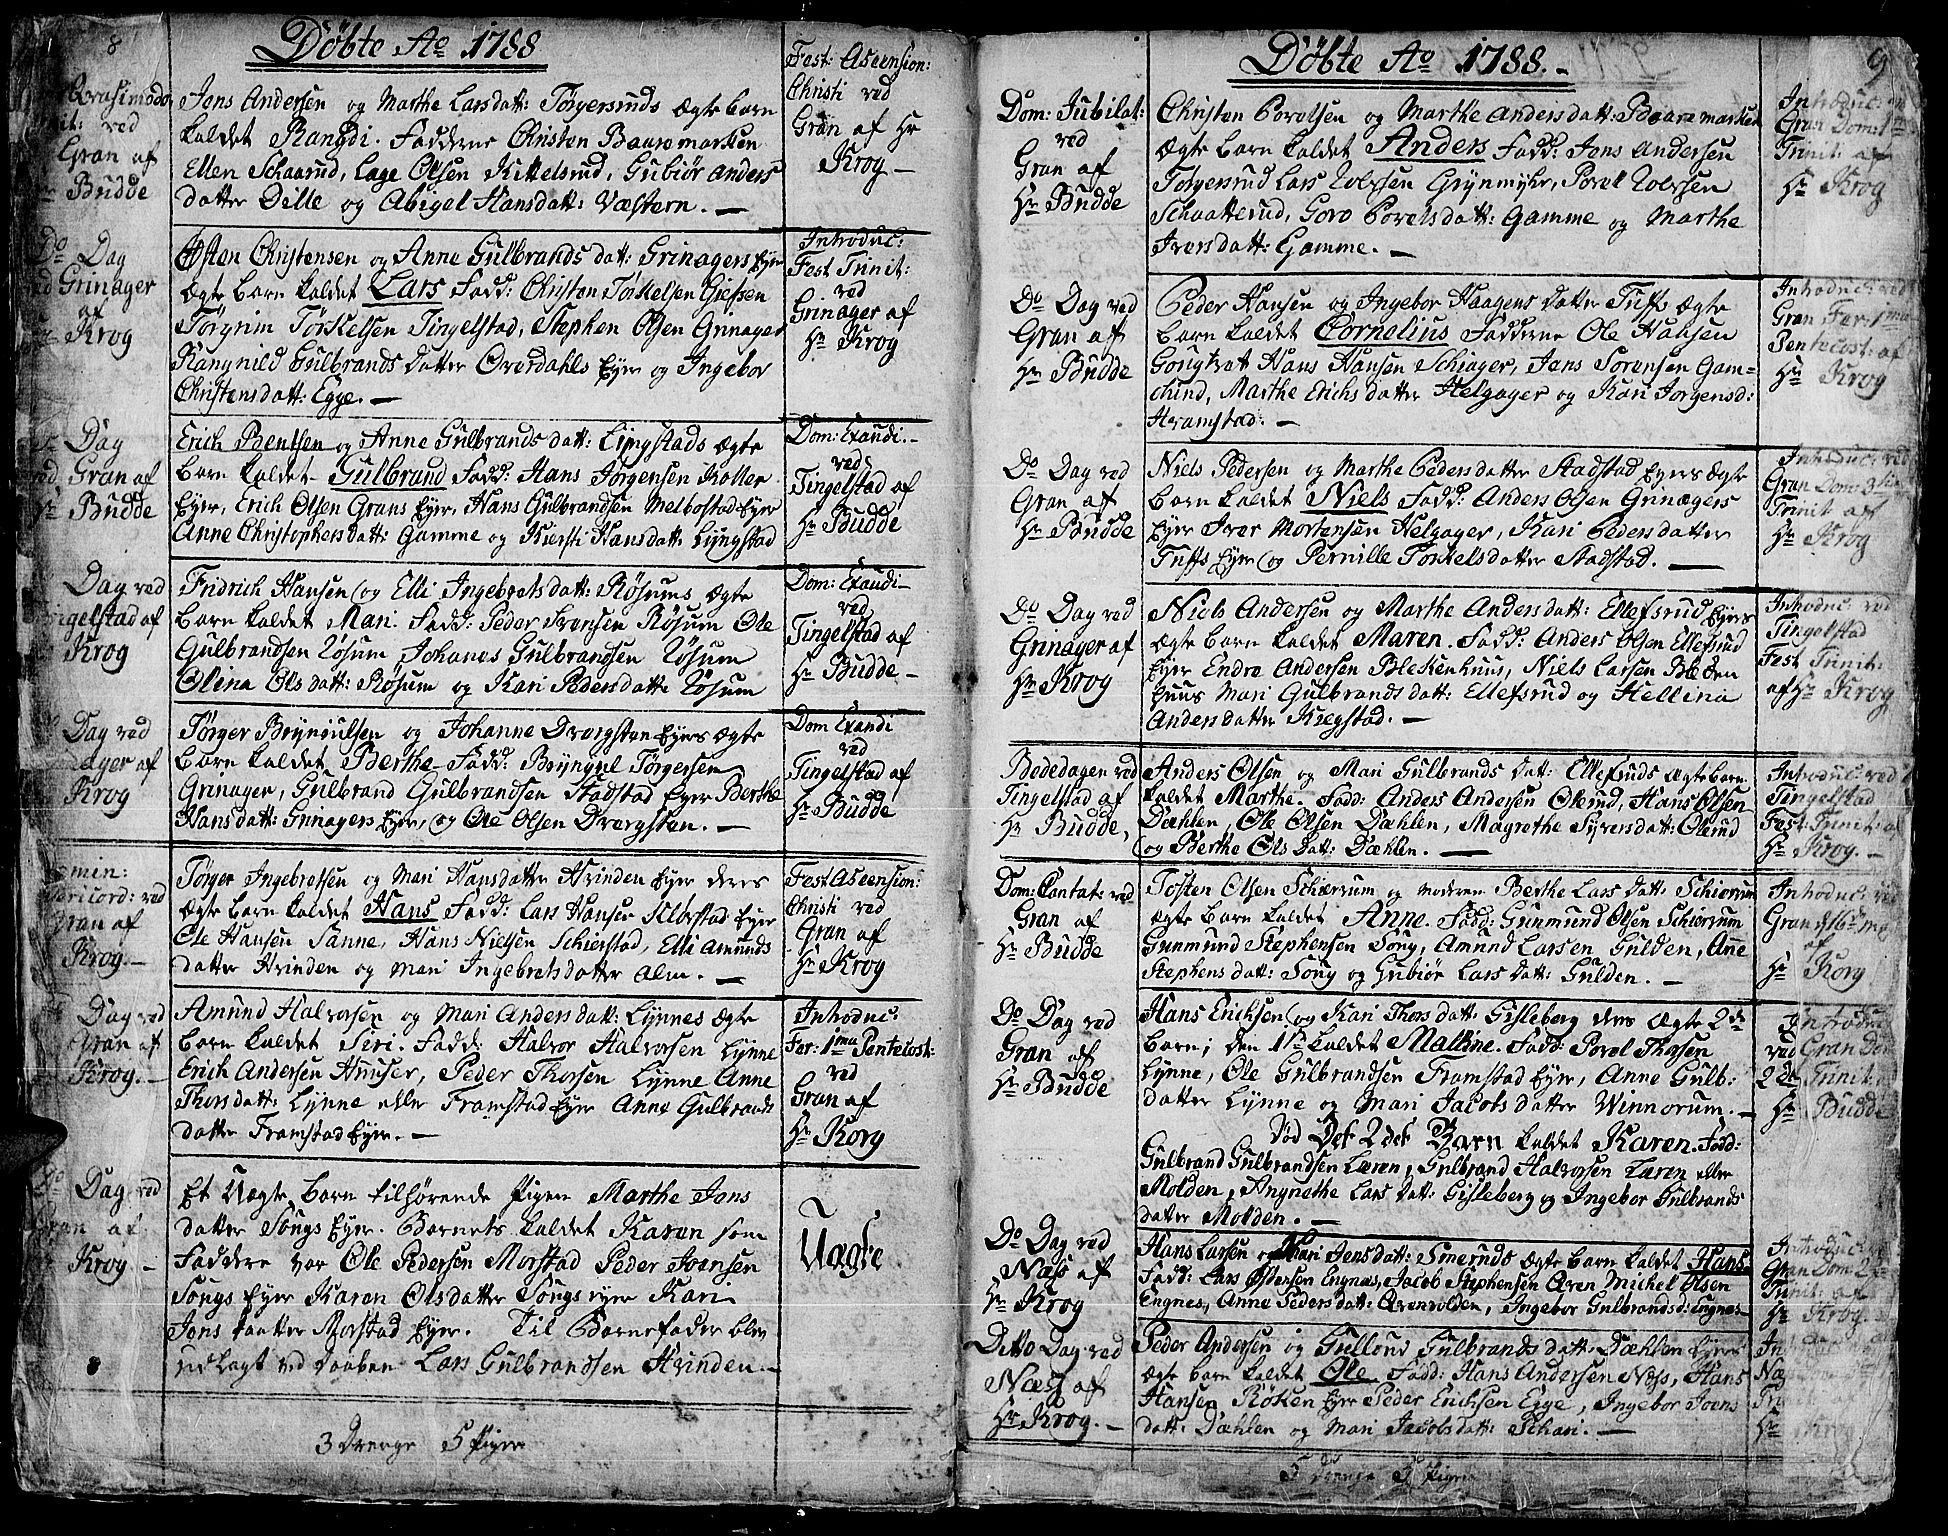 8
Döbte Ao 1788
Qvasimodo
ved
Gran af
Budde
Jens Andersen og Marthe Larsdatt: Törgersruds Ægte barn
kaldet Rangdi. Fadderne Christen Baaremarken
Ellen Schaarud, Lage Olsen Kittelsrud, Gubiör Anders
datter Dille og Abigel Hansdatt: Væstern. —
Fest: Ascension:
Christi ved
Gran af Hr
Krog —
Do Dag
ved Grinager
af
Krog
Östen Christensen og Anne Gulbrands datt: Grinagers Eyer
Ægte barn kaldet Lars Fadd: Christen Törkelsen
Törgrim Törkelsen Tingelstad, Stephen Olsen Grinager
Rangnild Gulbrands datter Overdahls Eyer og Ingebor
Christensdatt: Egge. —
Introduc:
Fest Trinit:
ved
Grinager af
Hr Krog
Dag
ved Gran af
Hr Budde
Erich Bentsen og Anne Gulbrands datt: Lyngstads Ægte
barn kaldet Gulbrand Fadd: Hans Jörgensen Koller
Eyer, Erich Olsen Grans Eyer, Hans Gulbrandsen Melbostad Eyer
Anne Christophersdatt: Gamme og Kiersti Hansdatt: Lyngstad
Dom: Exaudi. —
ved
Tingelstad af
Hr Budde
Dag ved
Tingelstad af
Krog
Fridrich Hansen og Elli Ingebretsdatt: Rösums Ægte
barn kaldet Mari. Fadd: Peder Iversen Rösum Ole
Gulbrandsen Rösum Johanes Gulbrandsen Rösum
Olina Olsdatt: Rösum og Kari Pedersdatter Rösum
Dom: Exaudi —
ved
Tingelstad af
Hr Budde —
Dag ved
Grinager af
Krog
Törger Bryngulsen og Johanne Dvergsten Eyers Ægte
barn kaldet Berthe Fadd: Bryngul Törgersen
Grinager, Gulbrand Gulbrandsen Stadstad Eyer Berthe
Hansdatt: Grinagers Eyer, og Ole Olsen Dvergsten. —
Dom Exaudi
ved
Tingelstad af
Hr Budde
Domin:
Misericord: ved
Gran af
Krog. —
Törger Ingebretsen og Mari Hansdatter Hvinden Eyer deres
Ægte barn kaldet Hans Fadd: Lars Hansen Eyer
Ole Hansen Sanne, Hans Nielsen Schierstad, Elli Amunds
datter Hvinden og Mari Ingebretsdatter Alm. —
Fest Ascension:
Christi ved
Gran af
Hr Krog
Dag ved
Gran af
Krog. —
Amund Halvorsen og Mari Andersdatt: Lynnes Ægte
barn kaldet Siri. Fadd: Halvor Halvorsen Lynne
Erich Andersen Huuser, Peder Thorsen Lynne Anne
Thorsdatt: Lynne eller Framstad Eyer Anne Gulbrands
datter Framstad Eyer. —
Introduc:
Fer: 1ma Pentecost:
ved
Gran af
Hr Korg
Do Dag ved
Gran af
Krog —
Et Uægte barn tilhörende Pigen Marthe Jens
datter Söngs Eyer. Barnets kaldet Karen som
Faddere var Ole Pedersen Morstad Peder Joensen
Söngs Eyer Karen Olsdatter Söngs Eyer Kari
Jens daatter Morstad Eyer. Til Barnefader blev
udlagt ved daaben Lars Gulbrandsen Hvinden. —
Uægte
3 Drenge 5 Piger
9
Döbte Ao 1788. —
Dom: Jubilat:
ved
Gran af
Hr Budde
Christen Povelsen og Marthe Andersdatt: Baaremarken
Ægte barn kaldet Anders Fadd: Jens Andersen
Törgersrud Lars Iversen Grynmyhr, Povel Iversen
Schaatterud, Goro Povelsdatt: Gamme og Marthe
Iversdatt: Gamme. —
Introduc:
Gran Dom: 1ma
Trinit: af
Hr Krog
Do Dag ved
Gran af
Hr Budde
Peder Hansen og Ingebor Haagens datter Tuffs Ægte
barn kaldet Cornelius Fadderne Ole Hansen
Hans Hansen Schiager, Jens Sorensen Gam-
Marthe Erichs datter Helgager og Kari Jorgensd:
Hramstad: —
Introduc: ved
Gran Fer: 1ma
Pentecost: af
Hr Krog
Do Dag ved
Gran af
Hr Budde
Niels Pedersen og Marthe Pedersdatter Stadstad Eyers Ægte
barn kaldet Niels Fadd: Anders Olsen Grinagers
Eyer Ivar Mortensen Helgager, Kari Pedersdatter
Tuffs Eyer og Pernille Torkelsdatter Stadstad. —
Introduc: ved
Gran Dom: 3tia
Trinit: af
Hr Krog
Do Dag ved
Grinager af
Hr Krog
Niels Andersen og Marthe Andersdatt: Ellefsrud Eyers
Ægte barn kaldet Maren. Fadd: Anders Olsen Ellefsrud
Eyer Endre Andersen Bleckenhuus, Niels Larsen Blecken
huus Mari Gulbrandsdatt: Ellefsrud og Hellina
Andersdatter Kiegstad. —
Introduc: ved
Tingelstad
Fest Trinit:
af Hr Krog
Bededagen ved
Tingelstad af
Hr Budde,
Anders Olsen og Mari Gulbrands datt: Ellefsruds Ægte barn
kaldet Marthe. Fadd: Anders Andersen Ölerud, Hans Olsen
Dæhlen, Ole Olsen Dæhlen, Magrethe Syversdatt: Ölerud
og Berthe Olsdatt: Dæhlen. —
Introduc: ved
Tingelstad
Fest: Trinit: af
Hr Krog. —
Dom: Cantate ved
Gran af
Hr Budde
Tosten Olsen Schierrum og moderen Berthe Lars datt: Schierrum
Ægte barn kaldet Anne. Fadd: Gunmund Olsen Schierrum
Gunmund Stephensen Söng, Amund Larsen Gulden, Anne
Stephensdatt: Söng og Gubiör Lars datt: Gulden. —
Introduc: ved
Gran
af
Hr Korg
Do Dag ved
Gran af
Hr Budde
Hans Erichsen og Kari Thorsdatt: Gisleberg deres Ægte 2de
barn; den 1te kaldet Malline. Fadd: Povel Thorsen
Lynne, Ole Gulbrandsen Framstad Eyer, Anne Gulb:
datter Lynne og Mari Jacobsdatter Winnorum. —
Död Det 2det Barn kaldet Karen. Fadd:
Gulbrand Gulbrandsen Læren, Gulbrand Halvorsen Læren eller
Molden, Angnethe Lars datt: Gisleberg og Ingebor Gulbrands
datter Molden. —
Introduc
ved Gran Dom
2de Trinit:
Hr Budde
Do Dag ved
Næs af
Hr Krog
Hans Larsen og Mari Jensdatt: Smeruds Ægte barn kaldet Hans
Fadd: Lars Östensen Engnæs, Jacob Stephensen Aren Michel Olsen
Engnes, Anne Pedersdatt: Arenvolden, Ingebor Gulbrandsd: Engnes
Introduc:
Gran Dom 2da
Trinit: af
Hr Krog.
Ditto Dag ved
Næss af
Hr Krog. —
Peder Andersen og Gulloug Gulbrandsdatt: Dæhlen Eyers
Ægte barn kaldet Ole Fadd: Hans Andersen Næss, Hans
Hansen Röken Eyer Peder Erichsen Egge, Ingebor Joens
datt: Dæhlen og Mari Jacobsdatt: Schari. —
5 Drenge 5 Piger